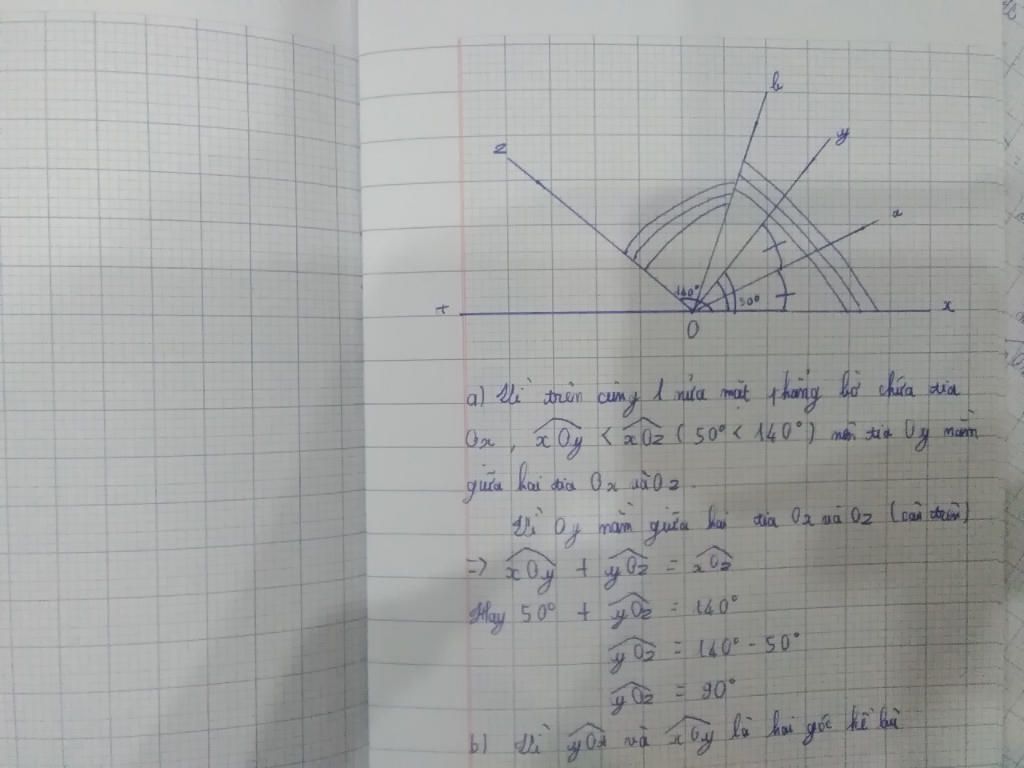 b
z
y
a
140°
50°
t
x
O
a) Vì trên cùng 1 nửa mặt phẳng bờ chứa tia
Ox, xOy < xOz (50° < 140°) nên tia Oy nằm
giữa hai tia Ox và Oz.
Vì Oy nằm giữa hai tia Ox và Oz (câu trên)
=> xOy + yOz = xOz
Hay 50° + yOz = 140°
yOz = 140° - 50°
yOz = 90°
b) Vì và xOy là hai góc kề bù